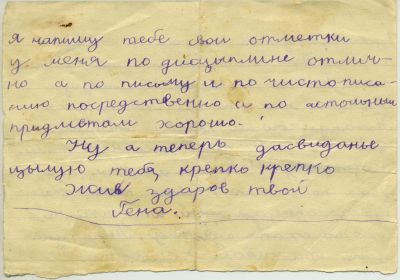 я напишу тебе свои отметки
у меня по дисцыплине отлич-
но а по писму и по чистописа-
нию посредственно а по астольным
придметам хорошо.
Ну а теперь дасвиданье
цылую тебя, крепко крепко
Жив здаров твой
Гена.